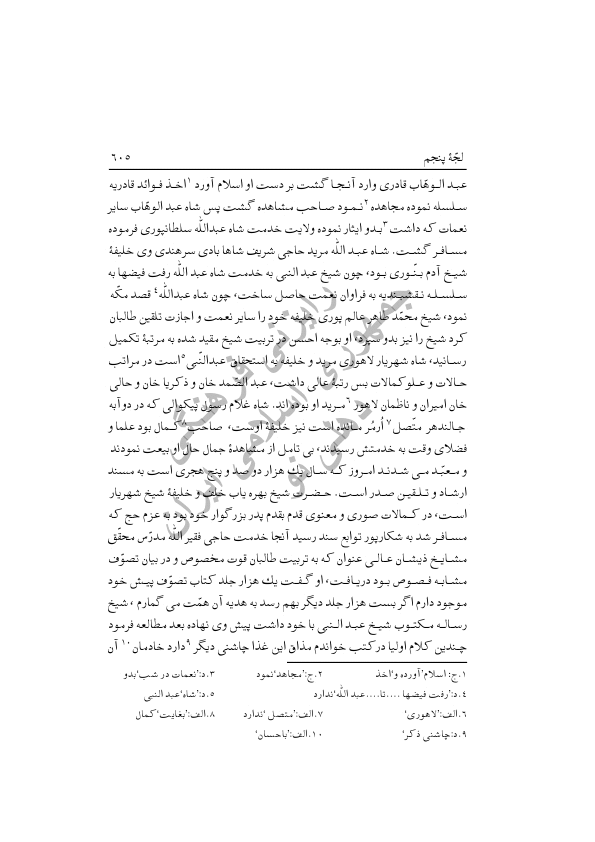 لجّهٔ پنجم ۶۰۵
عبد الوهّاب قادری وارد آنجا گشت بر دست او اسلام آورد ۱ اخذ فوائد قادریه
سلسله نموده مجاهده ۲ نمود صاحب مشاهده گشت پس شاه عبد الوهّاب سایر
نعمات که داشت ۳ بدو ایثار نموده ولایت خدمت شاه عبدالله سلطانپوری فرموده
مسافر گشت. شاه عبد الله مرید حاجی شریف شاها بادی سرهندی وی خلیفهٔ
شیخ آدم بنّوری بود، چون شیخ عبد النبی به خدمت شاه عبد الله رفت فیضها به
سلسله نقشبندیه به فراوان نعمت حاصل ساخت، چون شاه عبدالله ۴ قصد مکّه
نمود، شیخ محمّد طاهر عالم پوری خلیفه خود را سایر نعمت و اجازت تلقین طالبان
کرد شیخ را نیز بدو سپرد، او بوجه احسن در تربیت شیخ مقید شده به مرتبهٔ تکمیل
رسانید، شاه شهریار لاهوری مرید و خلیفه به استحقاق عبدالنّبی ۵ است در مراتب
حالات و علو کمالات بس رتبهٔ عالی داشت، عبد الصّمد خان و ذکریا خان و حالی
خان امیران و ناظمان لاهور ۶ مرید او بوده اند. شاه غلام رسول پیکوالی که در دوآبه
جالندهر متّصل ۷ اُرمُر مانده است نیز خلیفهٔ اوست، صاحب ۸ کمال بود علما و
فضلای وقت به خدمتش رسیدند، بی تامل از مشاهدهٔ جمال حال او بیعت نمودند
و معبّد می شدند امروز که سال یك هزار دو صد و پنج هجری است به مسند
ارشاد و تلقین صدر است. حضرت شیخ بهره یاب خلف و خلیفهٔ شیخ شهریار
است، در کمالات صوری و معنوی قدم بقدم پدر بزرگوار خود بود به عزم حج که
مسافر شد به شکارپور توابع سند رسید آنجا خدمت حاجی فقیر الله مدرّس محقّق
مشایخ ذیشان عالی عنوان که به تربیت طالبان قوت مخصوص و در بیان تصوّف
مشابه فصوص بود دریافت، او گفت یك هزار جلد کتاب تصوّف پیش خود
موجود دارم اگر بست هزار جلد دیگر بهم رسد به هدیه آن همّت می گمارم ، شیخ
رساله مکتوب شیخ عبد النبی با خود داشت پیش وی نهاده بعد مطالعه فرمود
چندین کلام اولیا در کتب خواندم مذاق این غذا چاشنی دیگر ۹ دارد خادمان ۱۰ آن
۱.ج: اسلام'آورده و'اخذ ۲.ج:'مجاهد'نمود ۳.د:'نعمات در شب'بدو
۴.د:'رفت فیضها ....تا....عبد الله'ندارد ۵.د:'شاه'عبد النبی
۶.الف:'لاهوری' ۷.الف:'متصل' ندارد ۸.الف:'بغایت'کمال
۹.د:چاشنی ذکر' ۱۰.الف:'باحسان'
جمهوری اسلامی ایران
رایزنی فرهنگی
دهلی نو